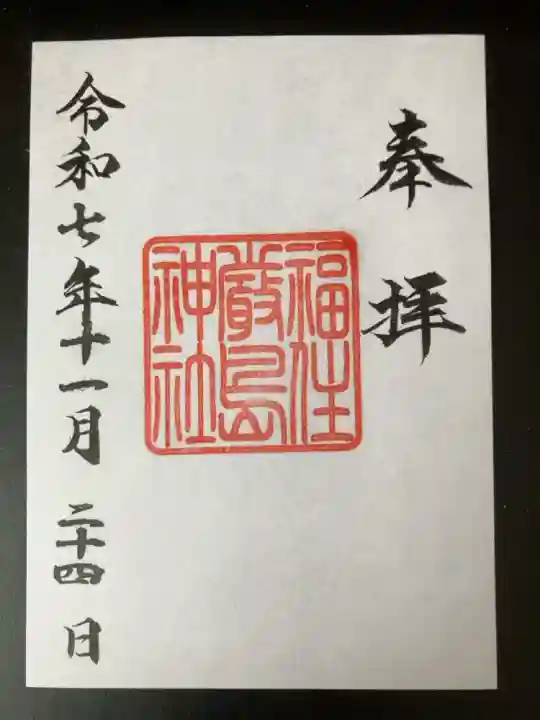 奉拝
福住
厳島
神社
令和七年十一月二十四日